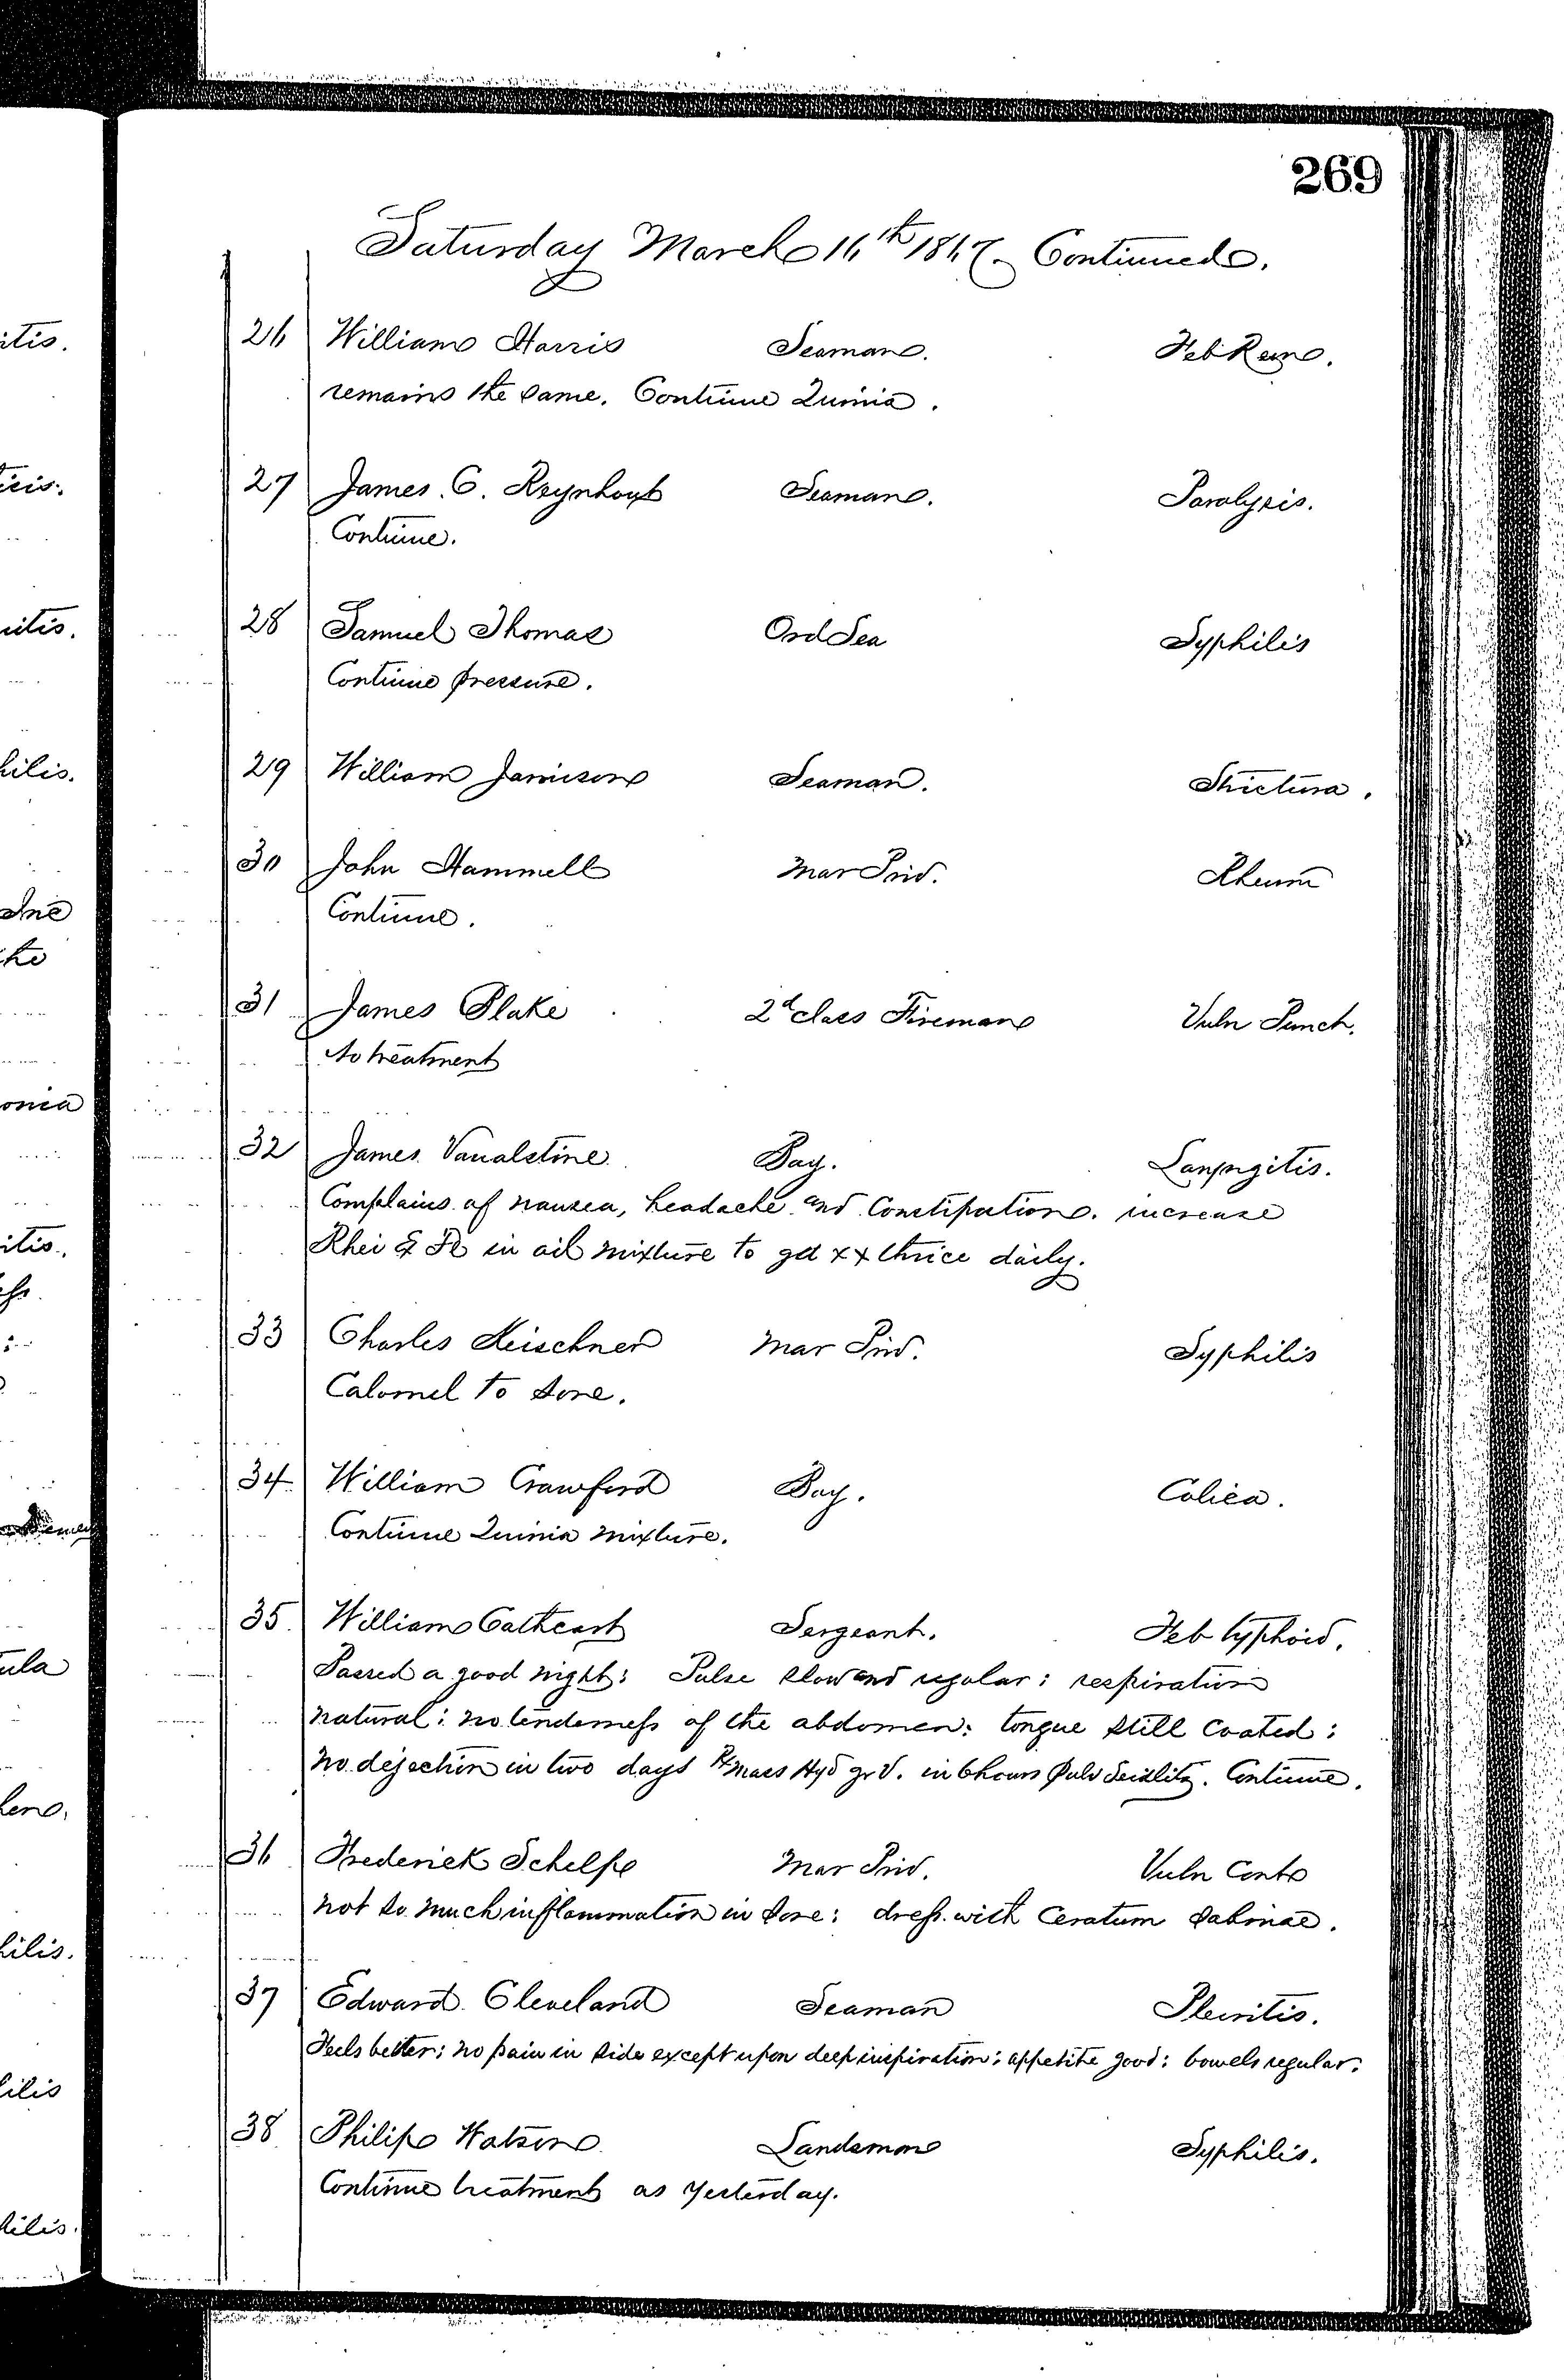 269
Saturday March 16th 1867. Continued.
26 William Harris Seaman. Feb Rem.
remains the same. Continue Quinia.
27 James. C. Reynhout Seaman. Paralysis.
Continue.
28 Samuel Thomas Ord Sea Syphilis
Continue pressure.
29 William Jamison Seaman. Strictura.
30 John Hammell Mar Priv. Rheum
Continue.
31 James Blake 2d class Fireman Vuln Punch.
No treatment
32 James Vanalstine Bay. Lanpngitis.
Complains of nausea, headache and Constipation. increase
Rhei & Fl in oil mixture to gtt xx thrice daily.
33 Charles Keischner Mar Priv. Syphilis
Calomel to sore.
34 William Crawford Bay. Colica.
Continue Quinia mixture.
35 William Cathcart Sergeant. Feb typhoid.
Passed a good night: Pulse slow and regular: respiration
natural: no tenderness of the abdomen: tongue still coated:
no dejection in two days ℞ mass Hyd gr V. in 6 hours Pulv Seidlitz. Continue.
36 Frederick Schelpe Mar Priv. Vuln Cont
not so much inflammation in sore: dress with Ceratum Sabinae.
37 Edward Cleveland Seaman Pleuritis.
Feels better: no pain in side except upon deep inspiration: appetite good: bowels regular.
38 Philip Watson Landsman Syphilis.
Continue treatment as yesterday.
itis.
hilis.
ine
the
onia
itis.
ula
hilis.
ilis
hilis.